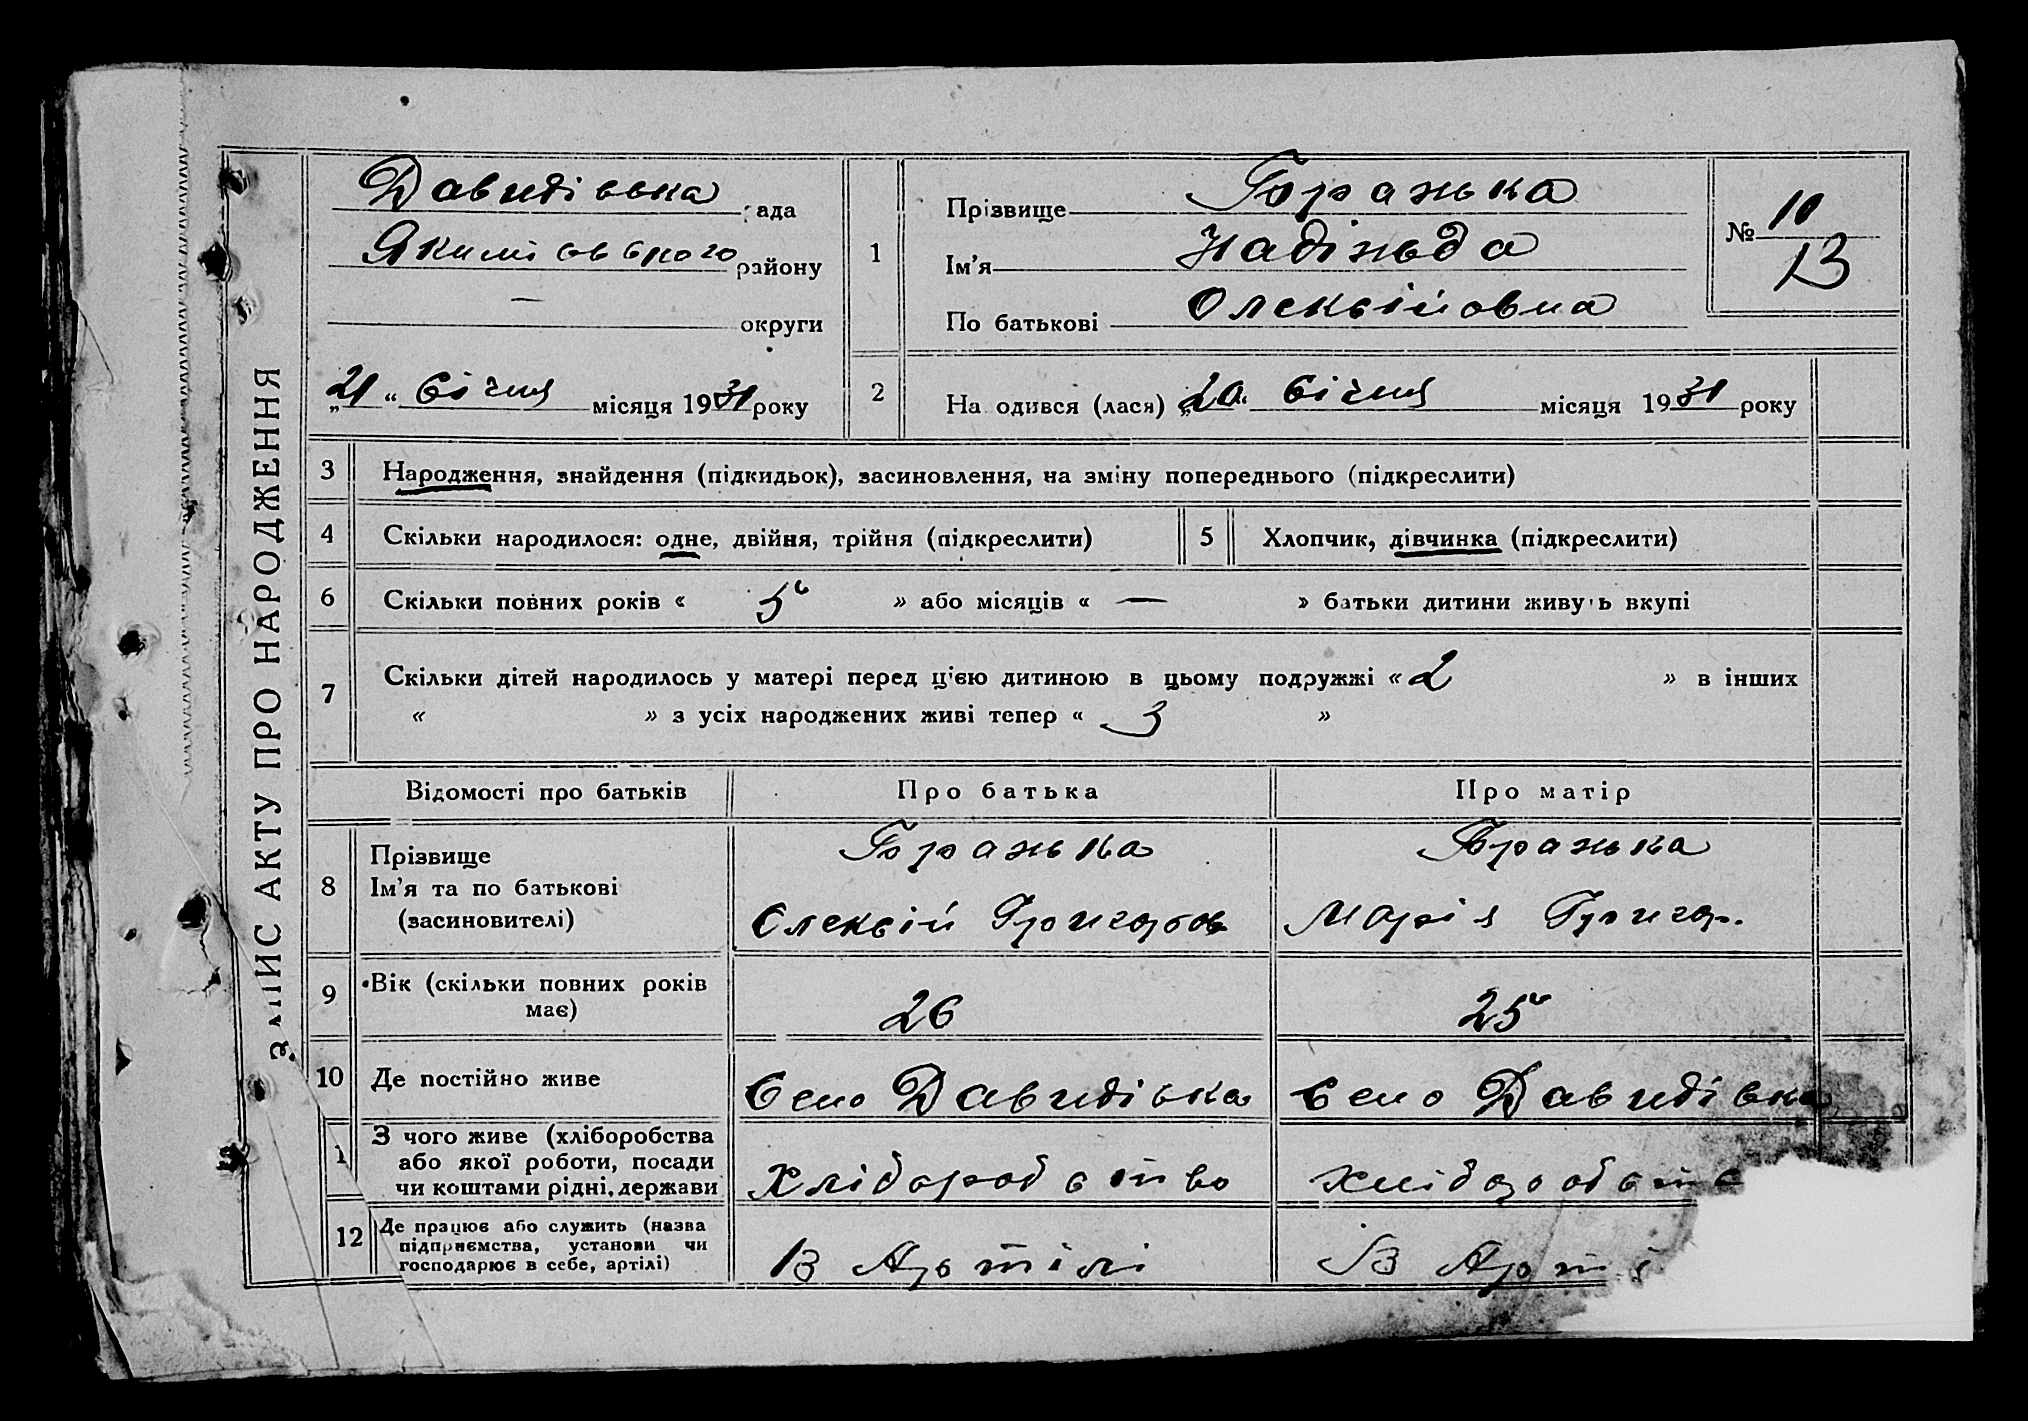 ЗАПИС АКТУ ПРО НАРОДЖЕННЯ
Давидівська рада
Якимівського району
— округи
„21“ Січня місяця 1931 року
1
Прізвище
Ім'я Надіжда
По батькові Олексіїовна
№ 10
13
2
На одився (лася) „20“ Січня місяця 1931 року
3 Народження, знайдення (підкидьок), засиновлення, на зміну попереднього (підкреслити)
4 Скільки народилося: одне, двійня, трійня (підкреслити)
5 Хлопчик, дівчинка (підкреслити)
6 Скільки повних років « 5 » або місяців « — » батьки дитини живуть вкупі
7 Скільки дітей народилось у матері перед цією дитиною в цьому подружжі « 2 » в інших
« » з усіх народжених живі тепер « 3 »
Відомості про батьків Про батька Про матір
8 Прізвище
Ім'я та по батькові
(засиновителі)
Олексій Григоров
Марія Григор.
9 Вік (скільки повних років має)
26
25
10 Де постійно живе
Село Давидівка
Село Давидівка
1 З чого живе (хліборобства
або якої роботи, посади
чи коштами рідні, держави
хліборобство
хліборобств
12 Де працює або служить (назва
підприємства, установи чи
господарює в себе, артілі)
В Артілі
В Арті